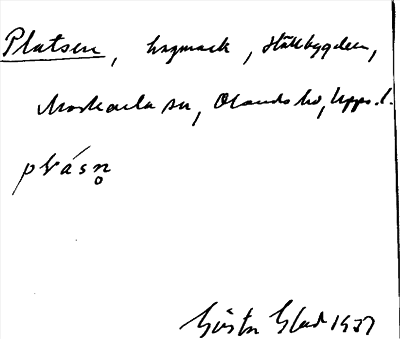 Platsen, hagmark, Hållbygden,
Markarla sn, Olands hd, Upps. l.
plásn̥
Gösta Glad 1937